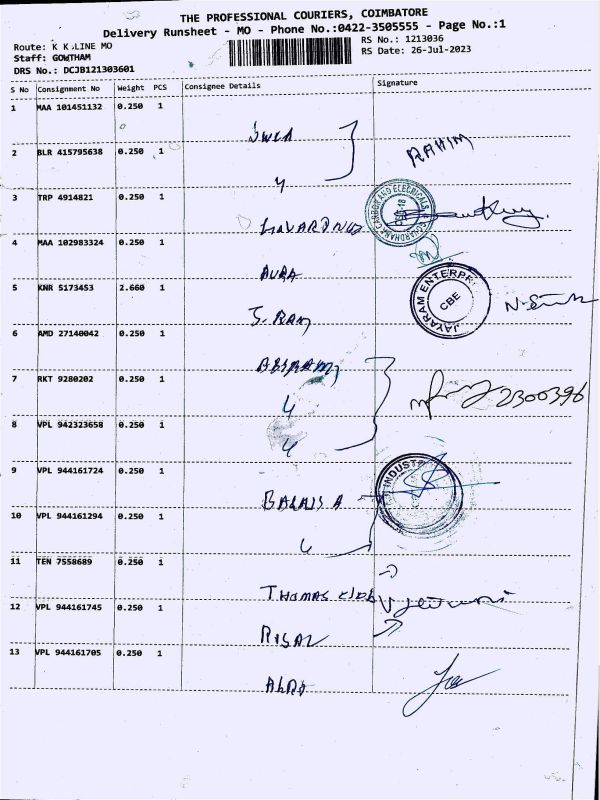 THE PROFESSIONAL COURIERS, COIMBATORE
Delivery Runsheet - MO - Phone No.:0422-3505555 - Page No.:1
Route: K K LINE MO
RS No.: 1213036
Staff: GOWTHAM
RS Date: 26-Jul-2023
DRS No.: DCJB121303601
S No Consignment No Weight PCS Consignee Details Signature
1 MAA 101451132 0.250 1
2 BLR 415795638 0.250 1
RAHIM
3 TRP 4914821 0.250 1
4 MAA 102983324 0.250 1
AURA
5 KNR 5173453 2.660 1
JAYARAM ENTERPR
CBE
S. RAM
6 AMD 27140042 0.250 1
7 RKT 9280202 0.250 1
2300396
8 VPL 942323658 0.250 1
9 VPL 944161724 0.250 1
INDUST
10 VPL 944161294 0.250 1
11 TEN 7558689 0.250 1
THOMAS
12 VPL 944161745 0.250 1
13 VPL 944161705 0.250 1